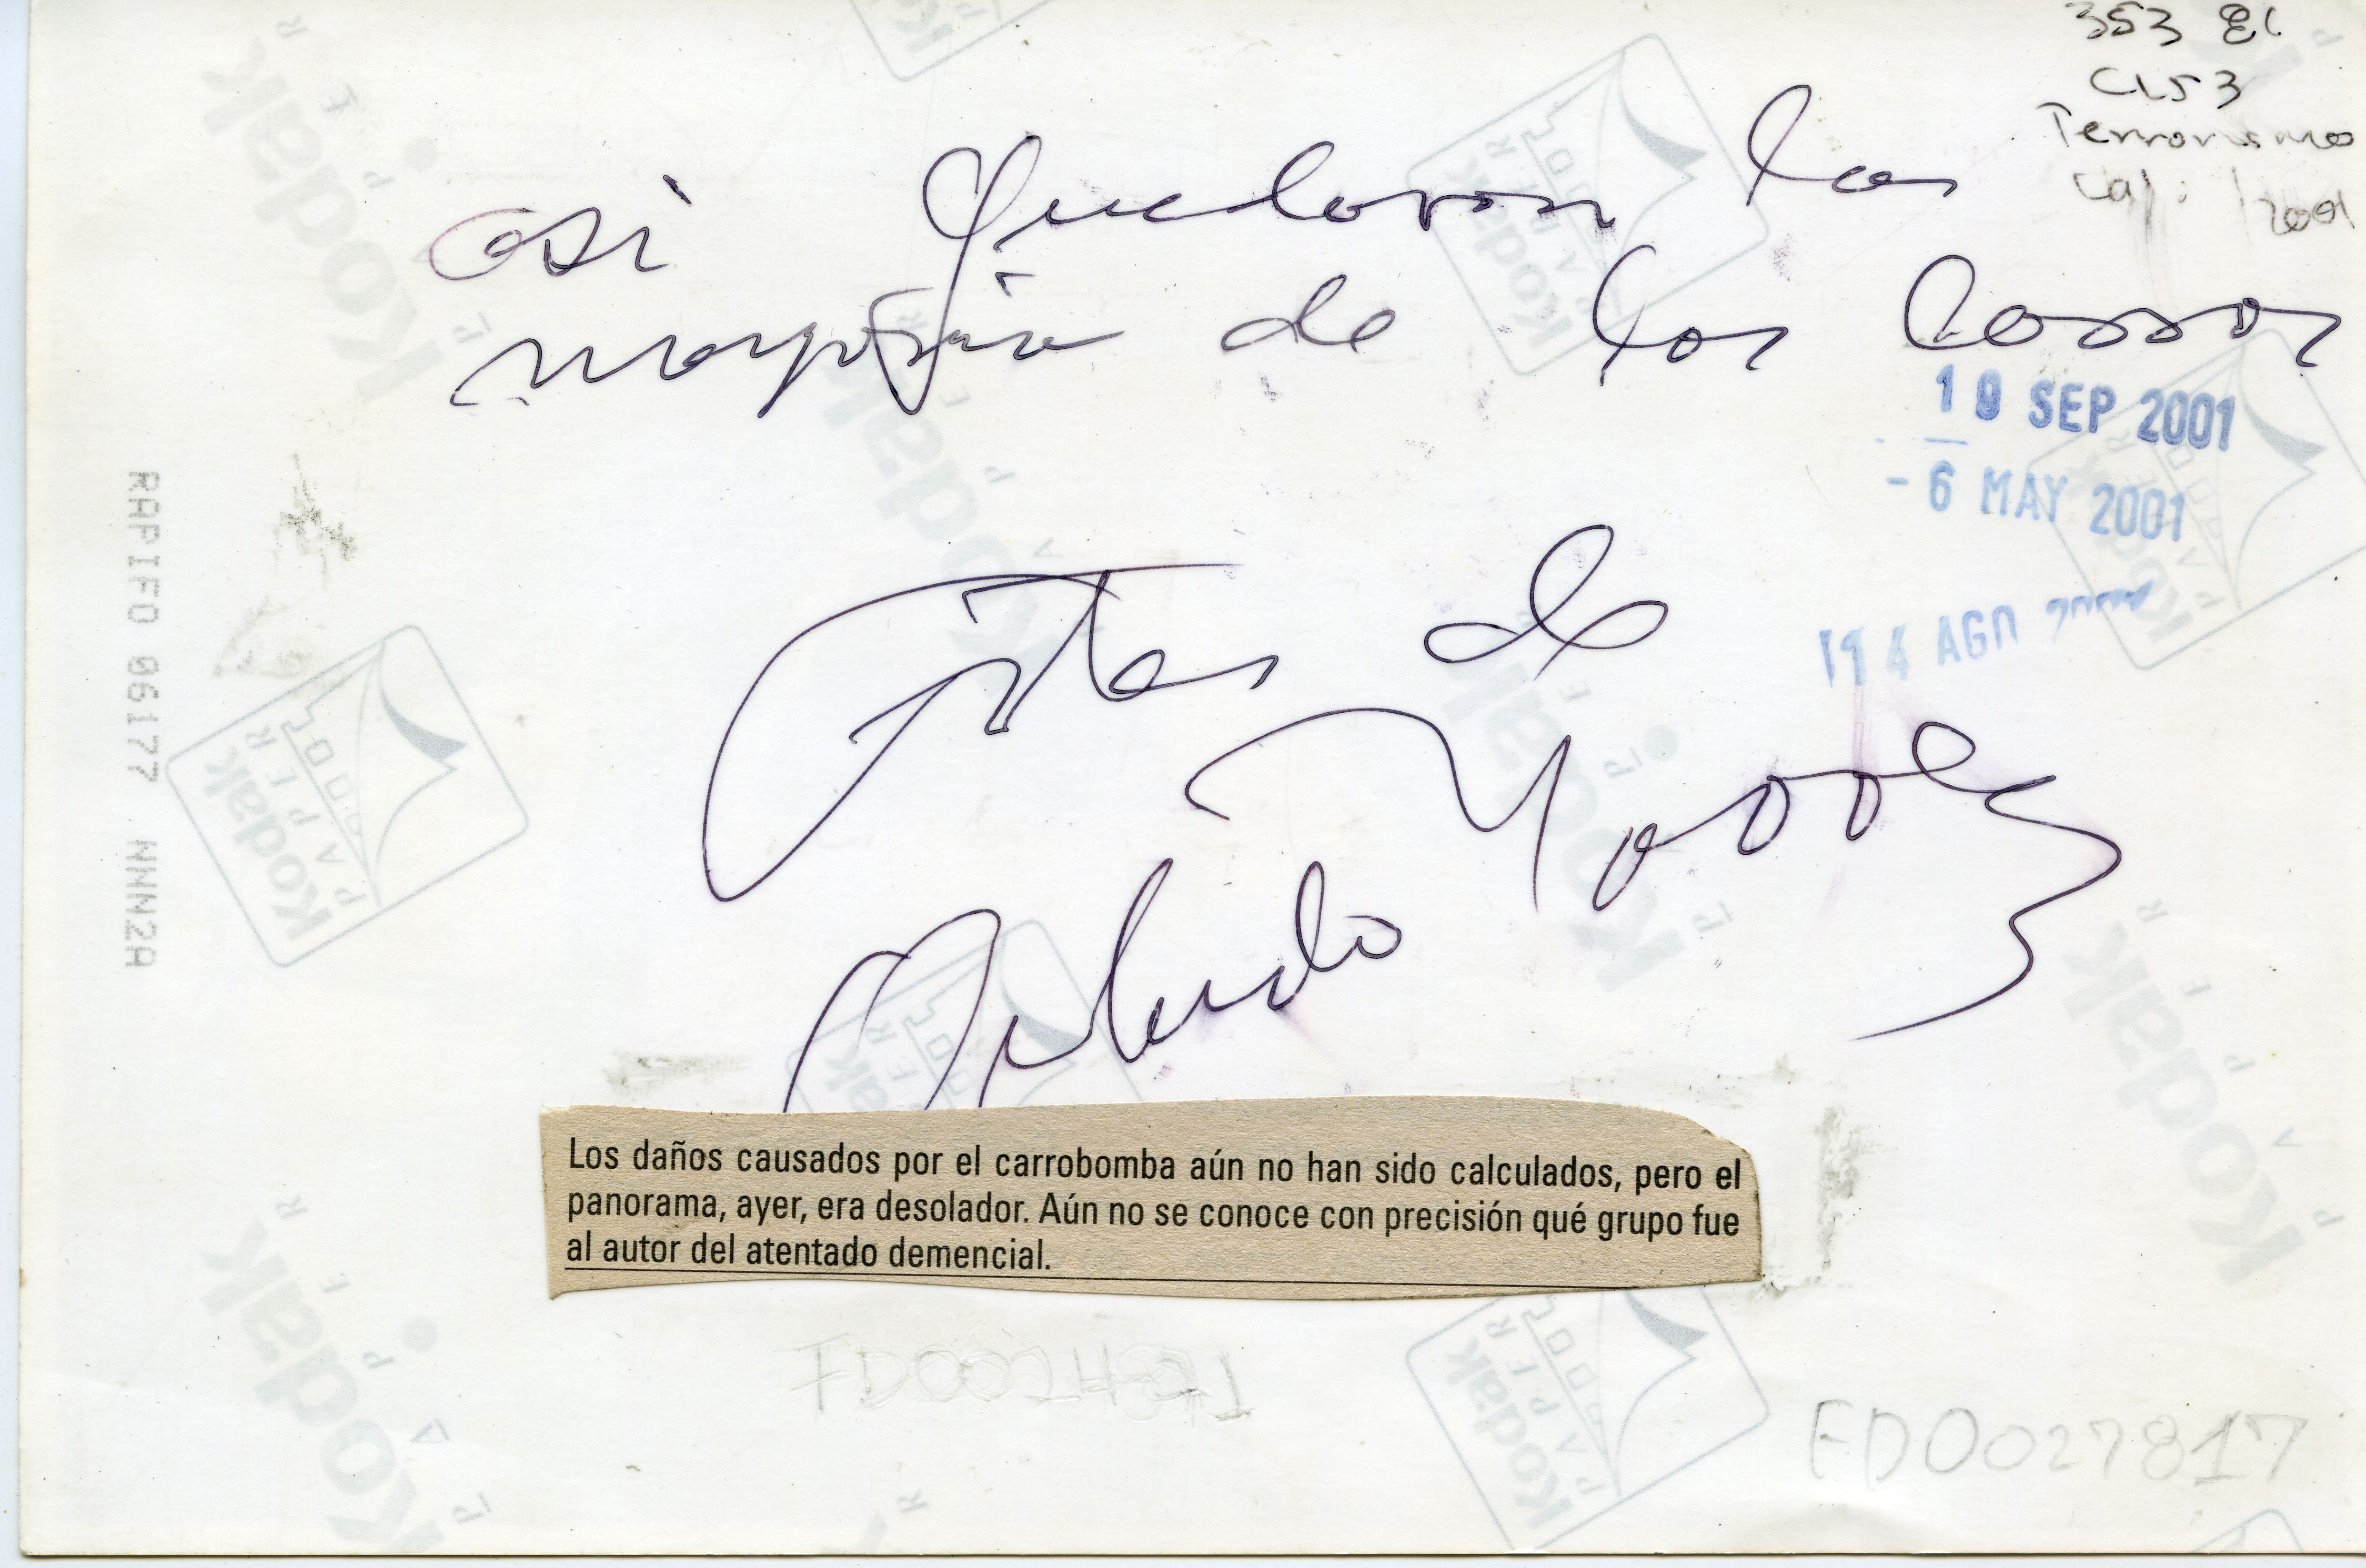 353 El
CL53
Terrorismo
Cali 2001
asi Quedaron la
mayoria de los Carros
19 SEP 2001
- 6 MAY 2001
14 AGO
de
RAPIFO 06177 NNN2A
Los daños causados por el carrobomba aún no han sido calculados, pero el
panorama, ayer, era desolador. Aún no se conoce con precisión qué grupo fue
al autor del atentado demencial.
FD0027817
Kodak
PAPER
PAPEL